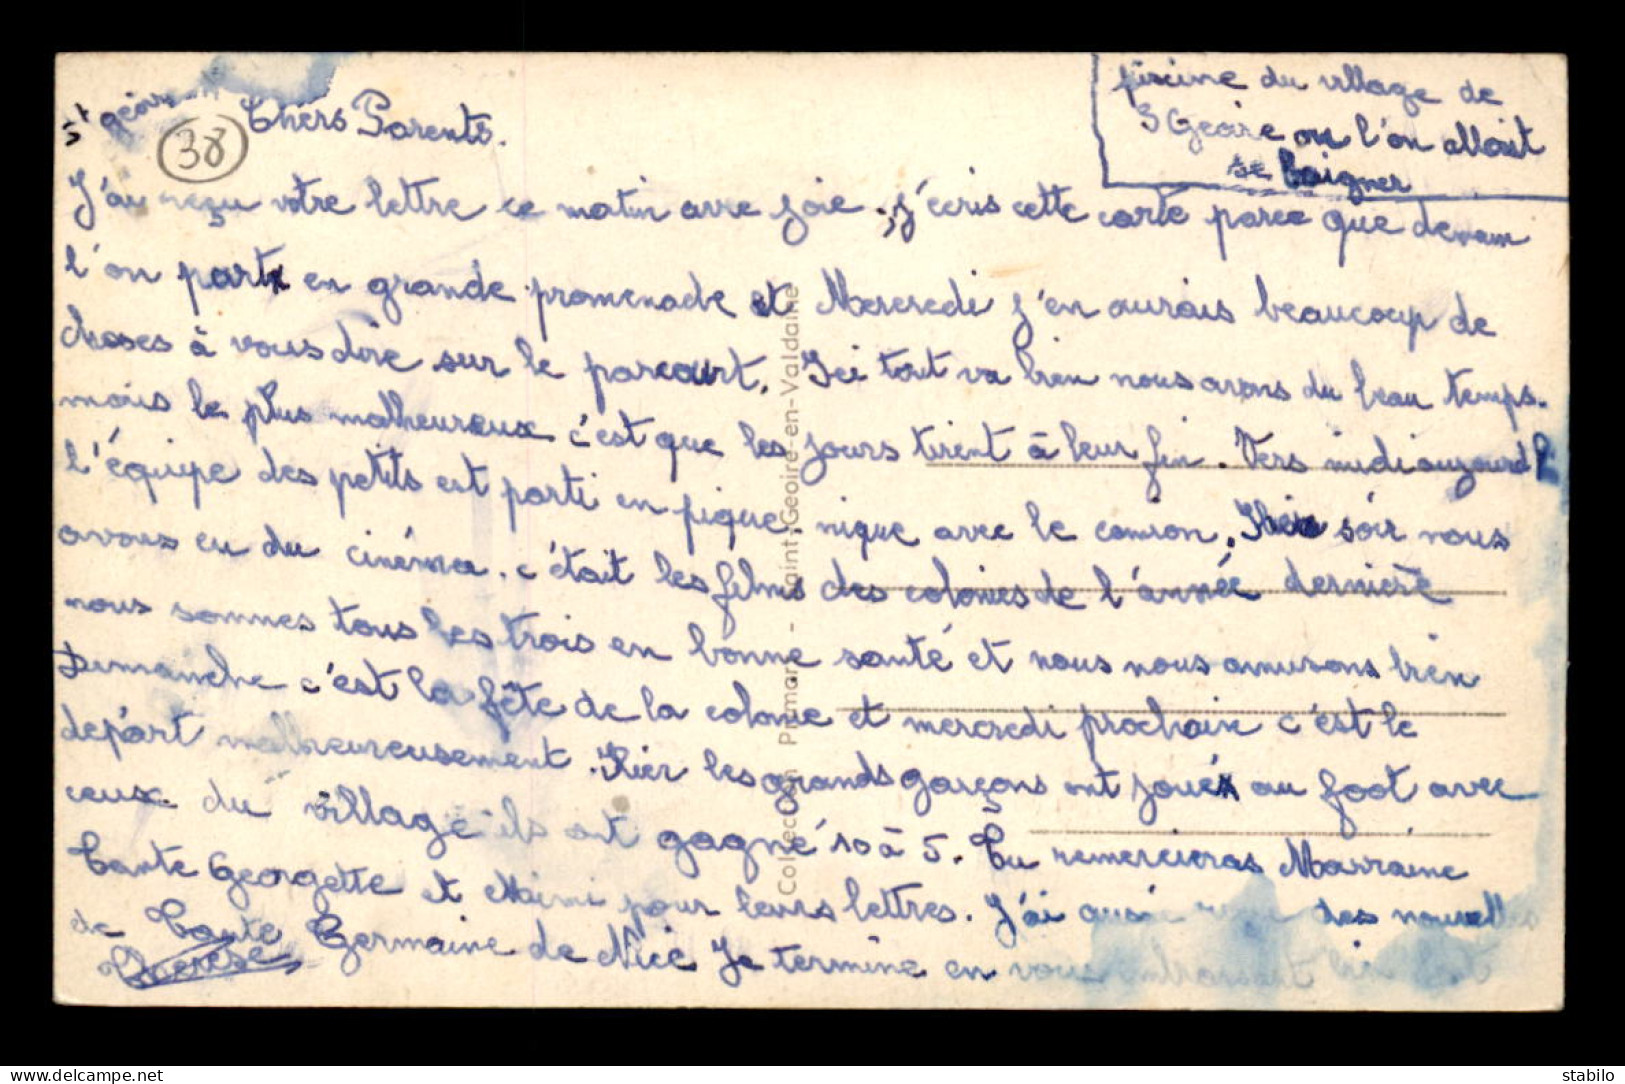 piscine du village de
S Geoire ou l'on allait
se baigner
St geoire
38
Chers Parents.
J'ai reçu votre lettre ce matin avec joie. j'ecris cette carte parce que demain
l'on part en grande promenade et Mercredi j'en aurais beaucoup de
choses à vous dire sur le parcourt. Ici tout va bien nous avons du beau temps.
mais le plus malheureux c'est que les jours tirent à leur fin. Vers midi aujourd h
l'équipe des petits est parti en pique-nique avec le camion. Hier soir nous
avons eu du cinéma. c'était les films des colonies de l'année derniere
nous sommes tous les trois en bonne santé et nous nous amusons bien
Dimanche c'est la fête de la colonie et mercredi prochain c'est le
depart malheureusement. Hier les grands garçons ont joué au foot avec
ceux du village ils ont gagné 10 à 5. Tu remercieras Marraine
Tante Georgette et Mimi pour leurs lettres. J'ai aussi des nouvelles
de Tante Germaine de Nice Je termine en vous embrassant bien fort
Therese
Collection Primard - Saint-Geoire-en-Valdaine
stabilo